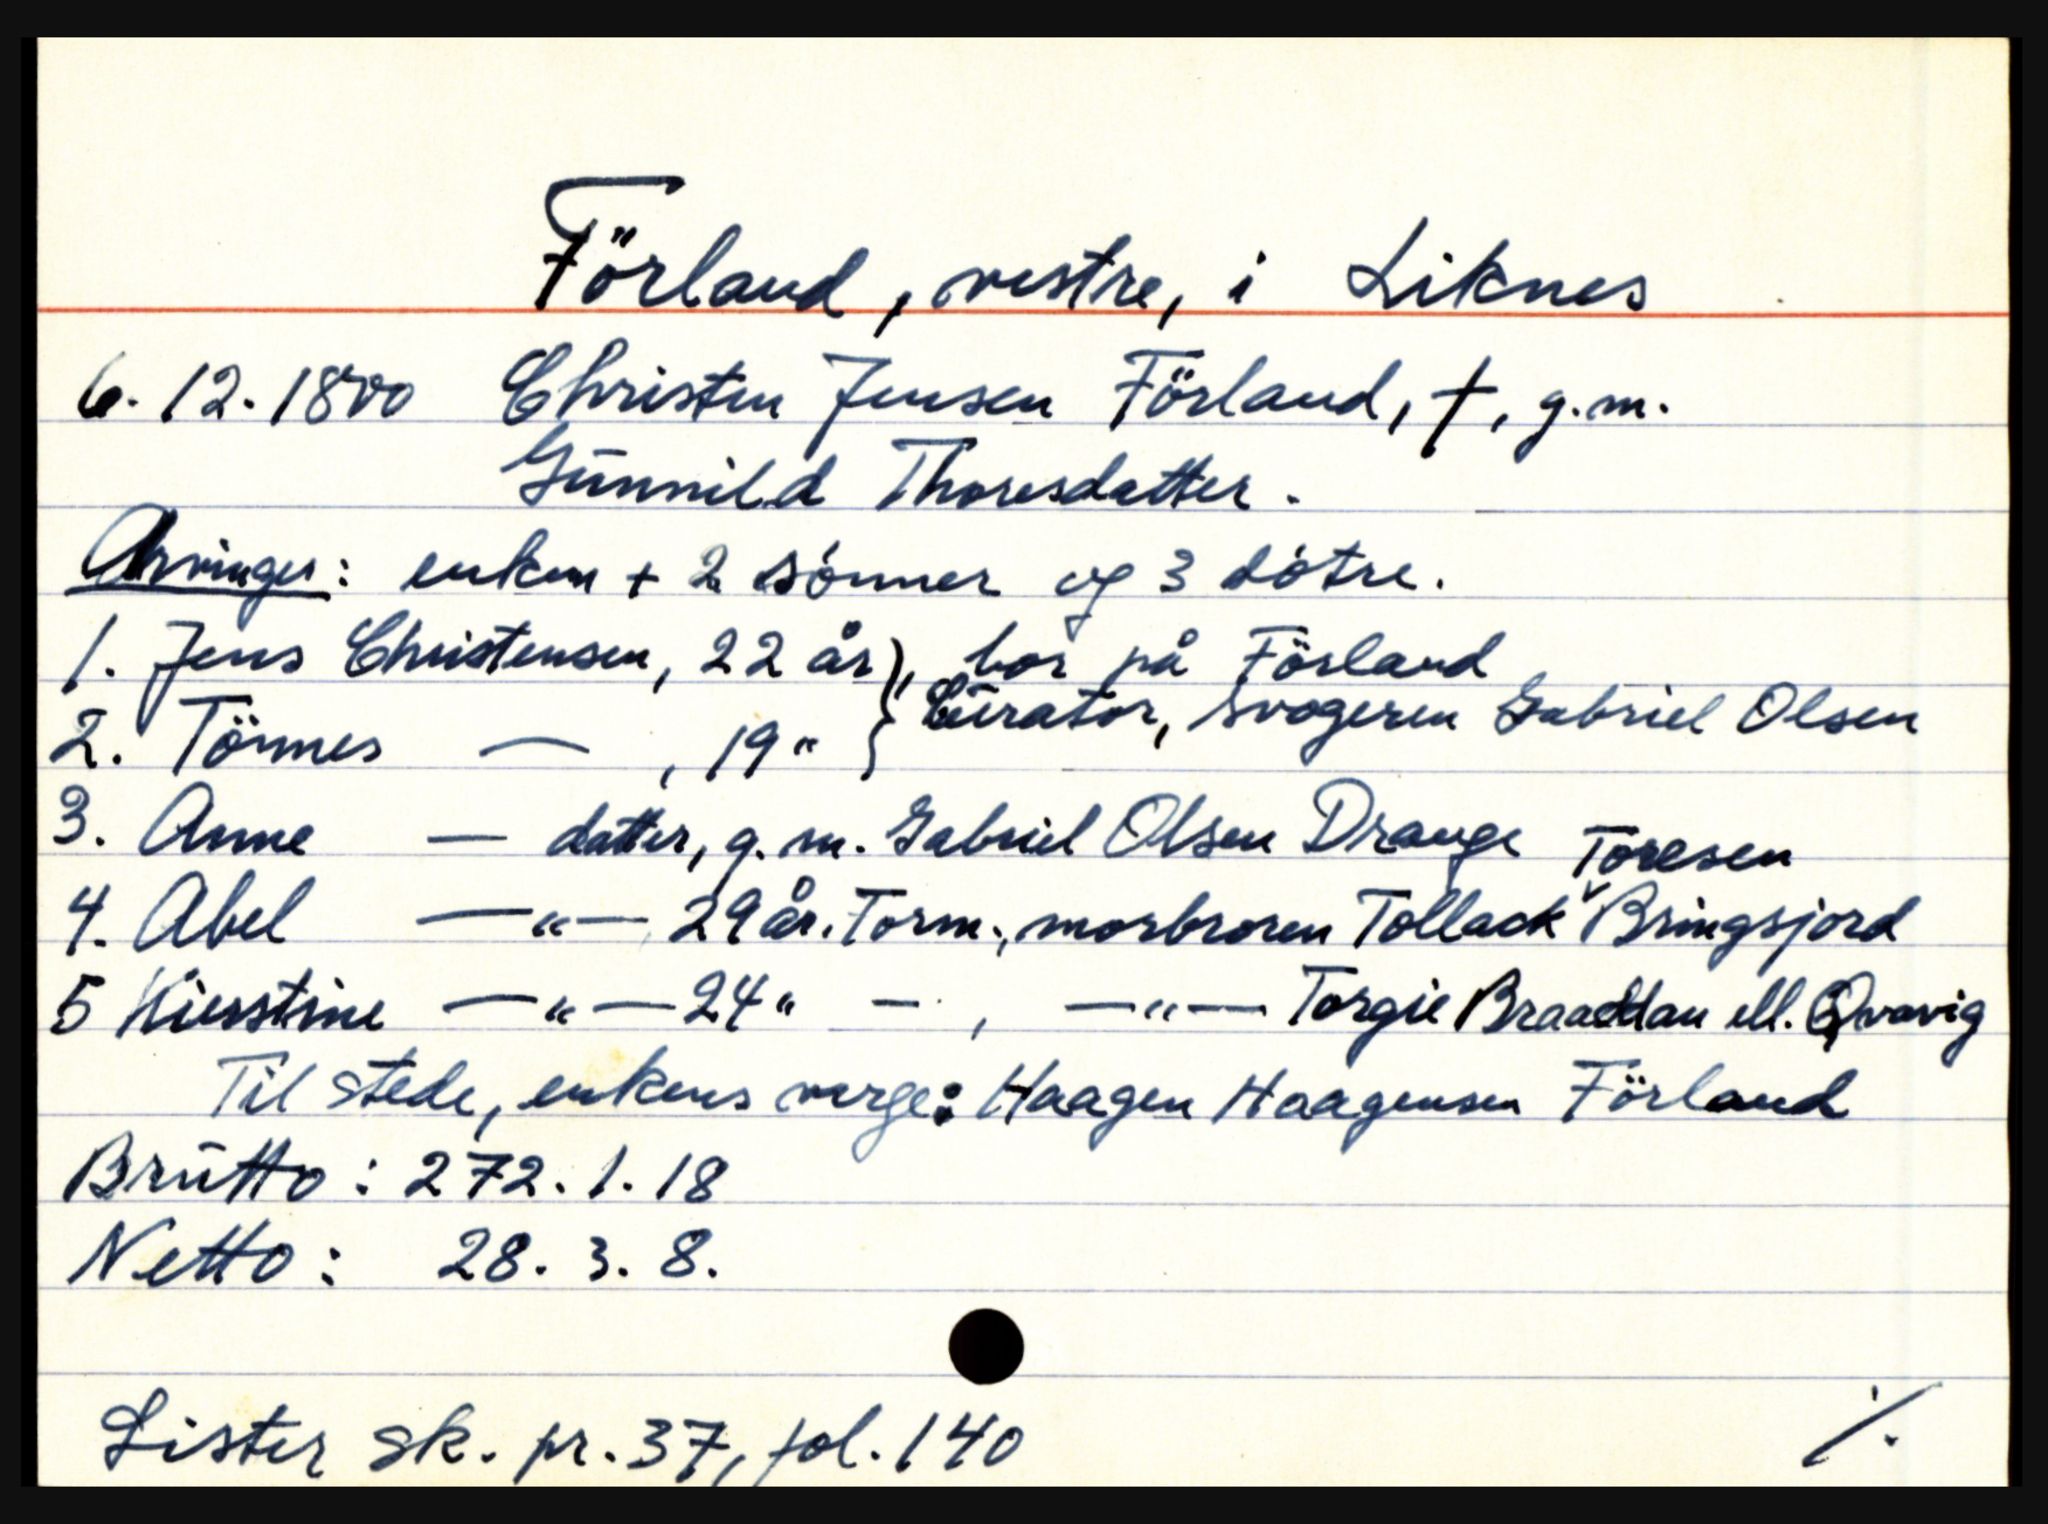 Förland, vestre, i Liknes
6.12.1800 Christen Jensen Förland, †, g.m.
Gunnild Thoresdatter.
Arvinger: enken + 2 sønner og 3 døtre.
1. Jens Christensen, 22 år}, bor på Förland
2. Tönnes — , 19 " } Curator, svogeren Gabriel Olsen
3. Anne — datter, g.m. Gabriel Olsen Drange
4. Abel —"— 29 år. Form., morbroren Tollack Toresen Bringsjord
5 Kiersstine —"— 24 " — , —"— Torgie Braaddan ell. Qvavig
Til stede, enkens verge: Haagen Haagensen Förland
Brutto: 272.1.18
Netto: 28.3.8.
Lister sk. pr. 37, fol. 140
./.